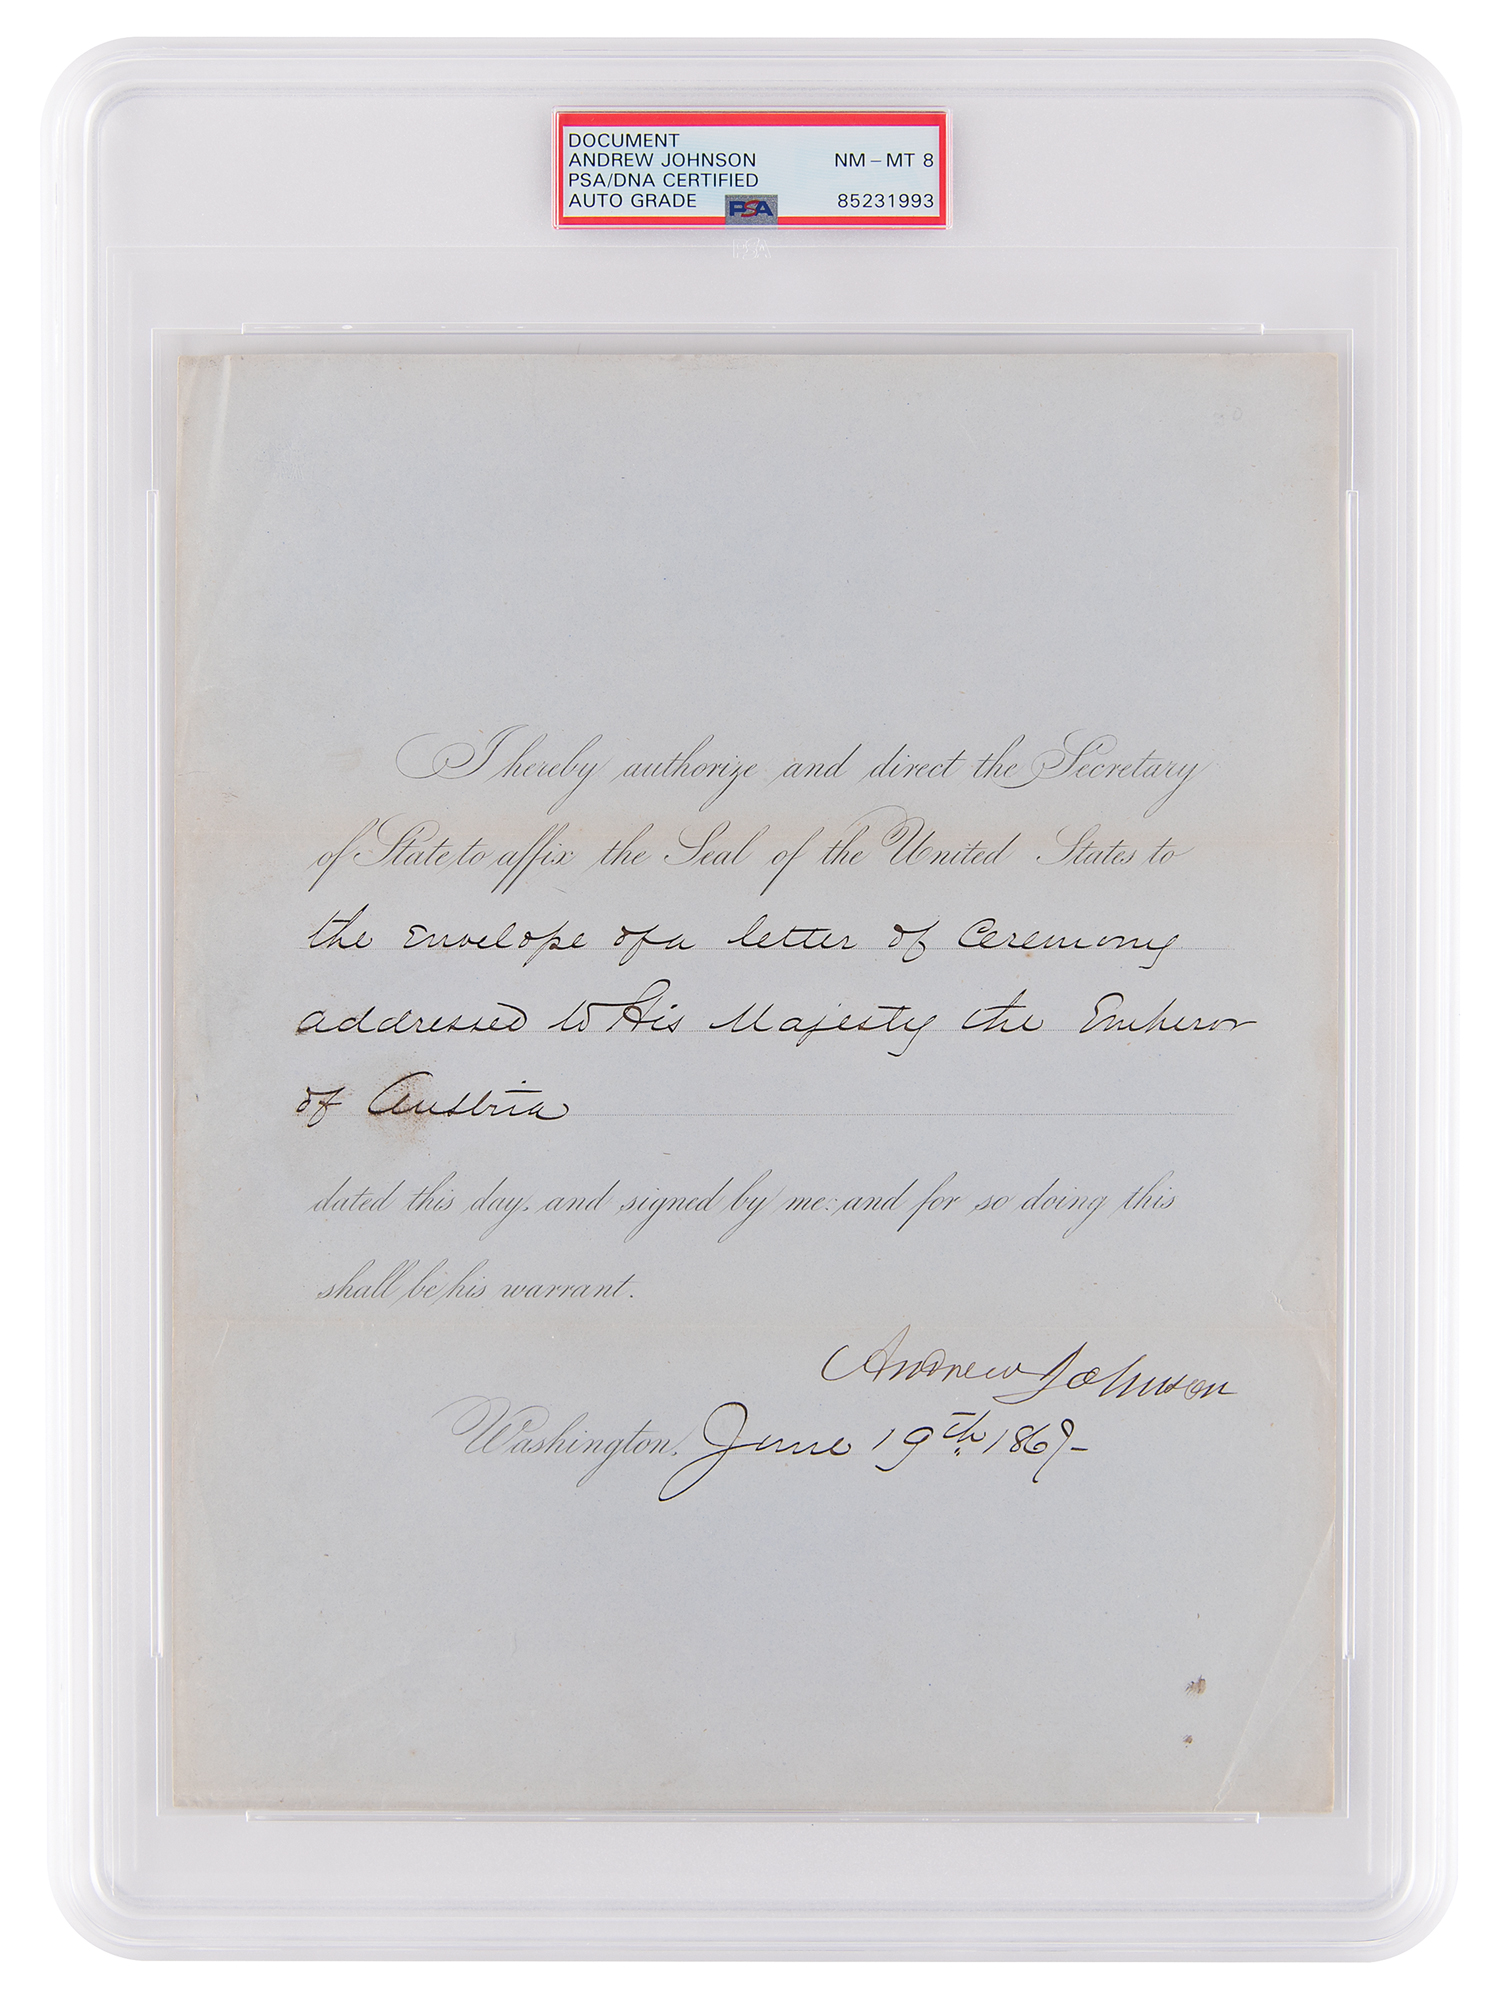 DOCUMENT
ANDREW JOHNSON NM–MT 8
PSA/DNA CERTIFIED
AUTO GRADE PSA 85231993
PSA
I hereby authorize and direct the Secretary
of State to affix the Seal of the United States to
the Envelope of a letter of Ceremony
addressed to His Majesty the Emperor
of Austria
dated this day, and signed by me: and for so doing this
shall be his warrant.
Andrew Johnson
Washington, June 19th 1867-